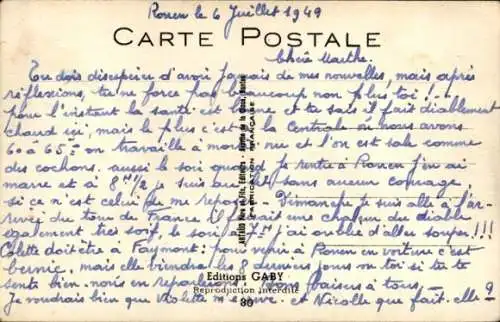 Rouen le 6 Juillet 1949
CARTE POSTALE
Chère Marthe.
Tu dois désespérer d'avoir jamais de mes nouvelles, mais après
réflexions, tu ne force pas beaucoup non plus toi !
pour l'instant la santé est bonne et tu sais il fait diablement
chaud ici, mais le plus c'est à la Centrale où nous avons
60 à 65° on travaille à moitié nu et l'on est sale comme
des cochons. aussi le soir quand je rentre à Rouen j'en ai
marre et à 8 H 1/2 je suis au lit sans aucun courage
si ce n'est celui de me reposer. Dimanche je suis allé à l'ar-
rivée du tour de France il faisait une chaleur du diable
également très soif, le soir j'ai oublié d'aller souper !!!
Colette doit être à Faymont; pour venir à Rouen en voiture c'est
bernic, mais elle viendra les 8 derniers jours ou toi si tu te
sens bien. nous en reparlerons. Bons baisers à tous
Je voudrais bien que Violette m'écrive. et Nicolle que fait-elle ?
Editions GABY
Reproduction Interdite
80